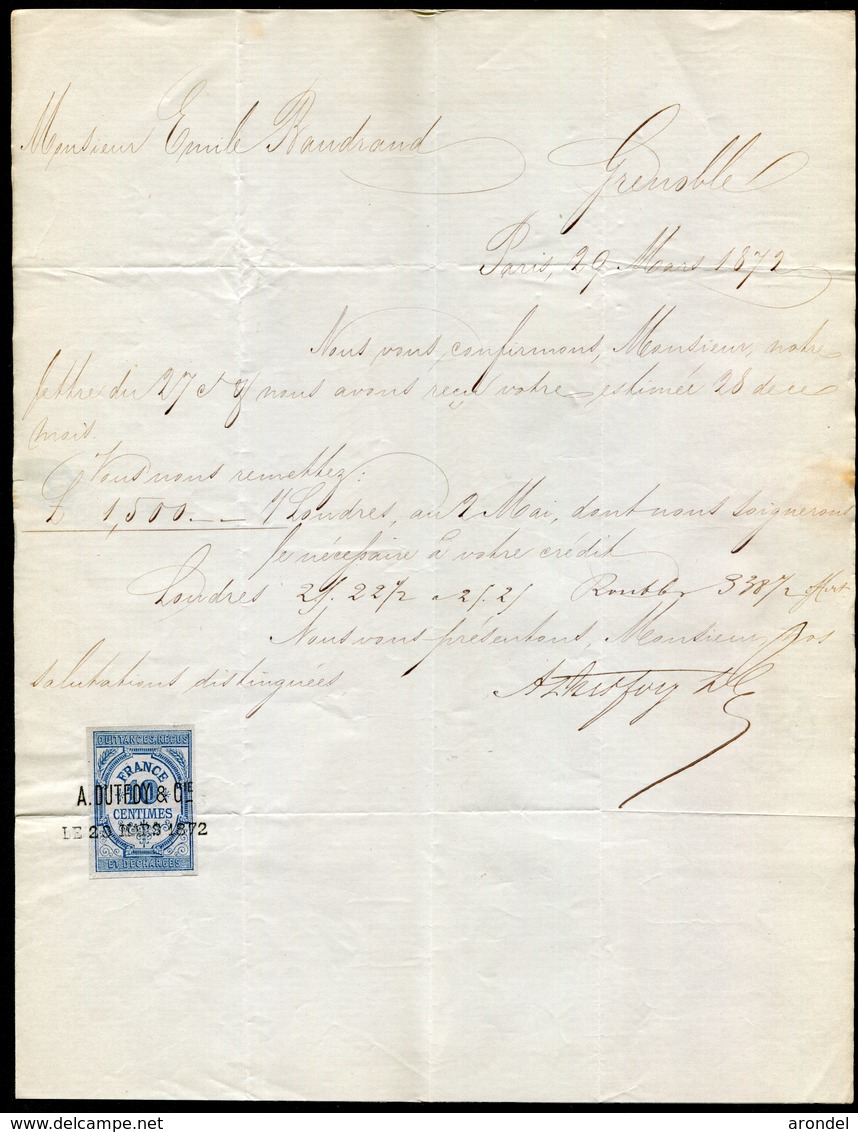 Monsieur Emile Baudrand
Grenoble
Paris, 29 Mars 1872
Nous vous confirmons, Monsieur, notre
lettre du 27 ct & nous avons reçu votre estimée 28 de ce
mois.
Vous nous remettez:
£ 1,500 -- s/ Londres, au 2 Mai, dont nous soignerons
le nécessaire à votre crédit
Londres 25.22½ a 25.25 Roubles 338½
Nous vous présentons, Monsieur, nos
salutations distinguées
A Dutfoy & Cie
QUITTANCES, REÇUS
FRANCE
10
CENTIMES
ET DÉCHARGES
A. DUTFOY & CIE
LE 29 MARS 1872
www.delcampe.net
arondel